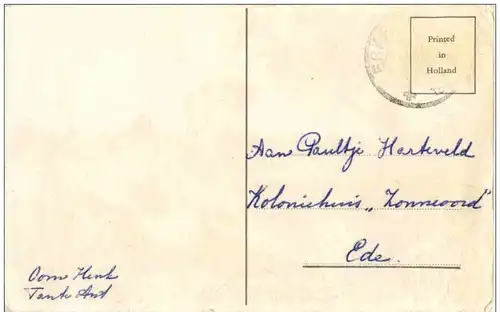 Printed
in
Holland
Aan Paultje Harteveld
Koloniehuis „Zonneoord"
Ede.
Oom Henk
Tante Ant